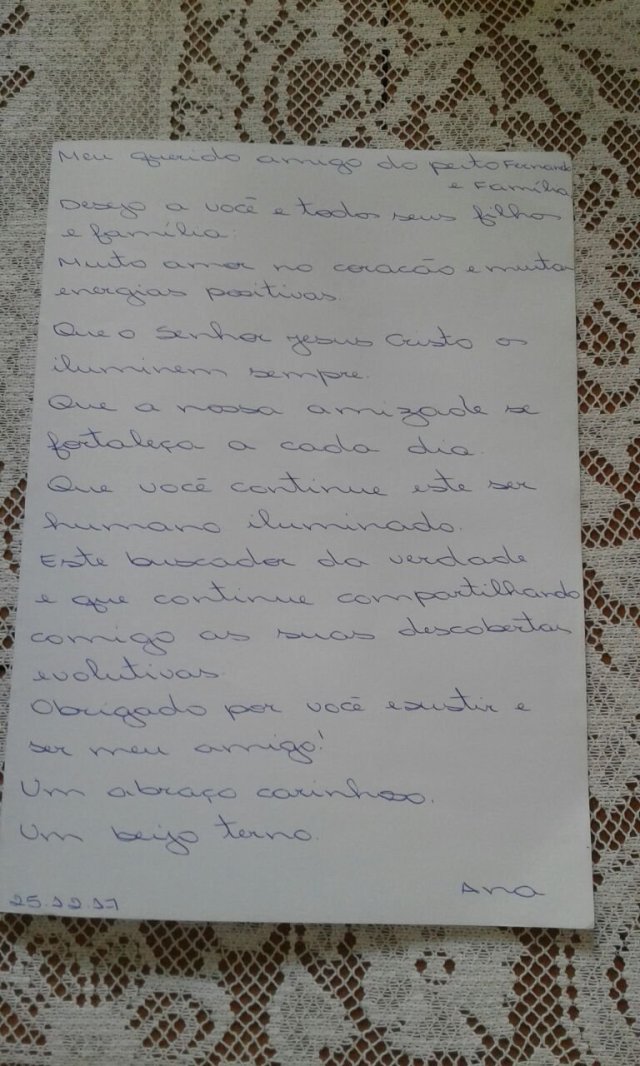 Meu querido amigo do peito Fernando
e Família
Desejo a você e todos seus filhos
e família.
Muito amor no coracão e muita
energias positivas.
Que o Senhor Jesus Cristo os
iluminem sempre.
Que a nossa amizade se
fortaleça a cada dia.
Que você continue este ser
humano iluminado.
Este buscador da verdade
e que continue compartilhando
comigo as suas descobertas
evolutivas.
Obrigado por você existir e
ser meu amigo!
Um abraço carinhoso.
Um beijo terno.
Ana
25.12.17